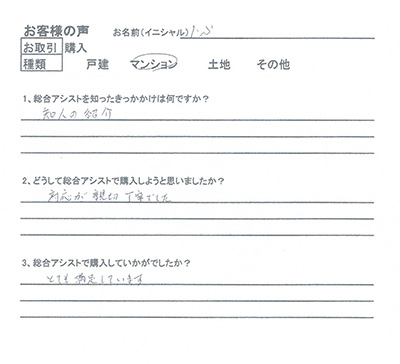 お客様の声 お名前(イニシャル)
お取引 購入
種類 戸建 マンション 土地 その他
1、総合アシストを知ったきっかかけは何ですか?
知人の紹介
2、どうして総合アシストで購入しようと思いましたか?
対応が親切丁寧でした
3、総合アシストで購入していかがでしたか?
とても満足しています